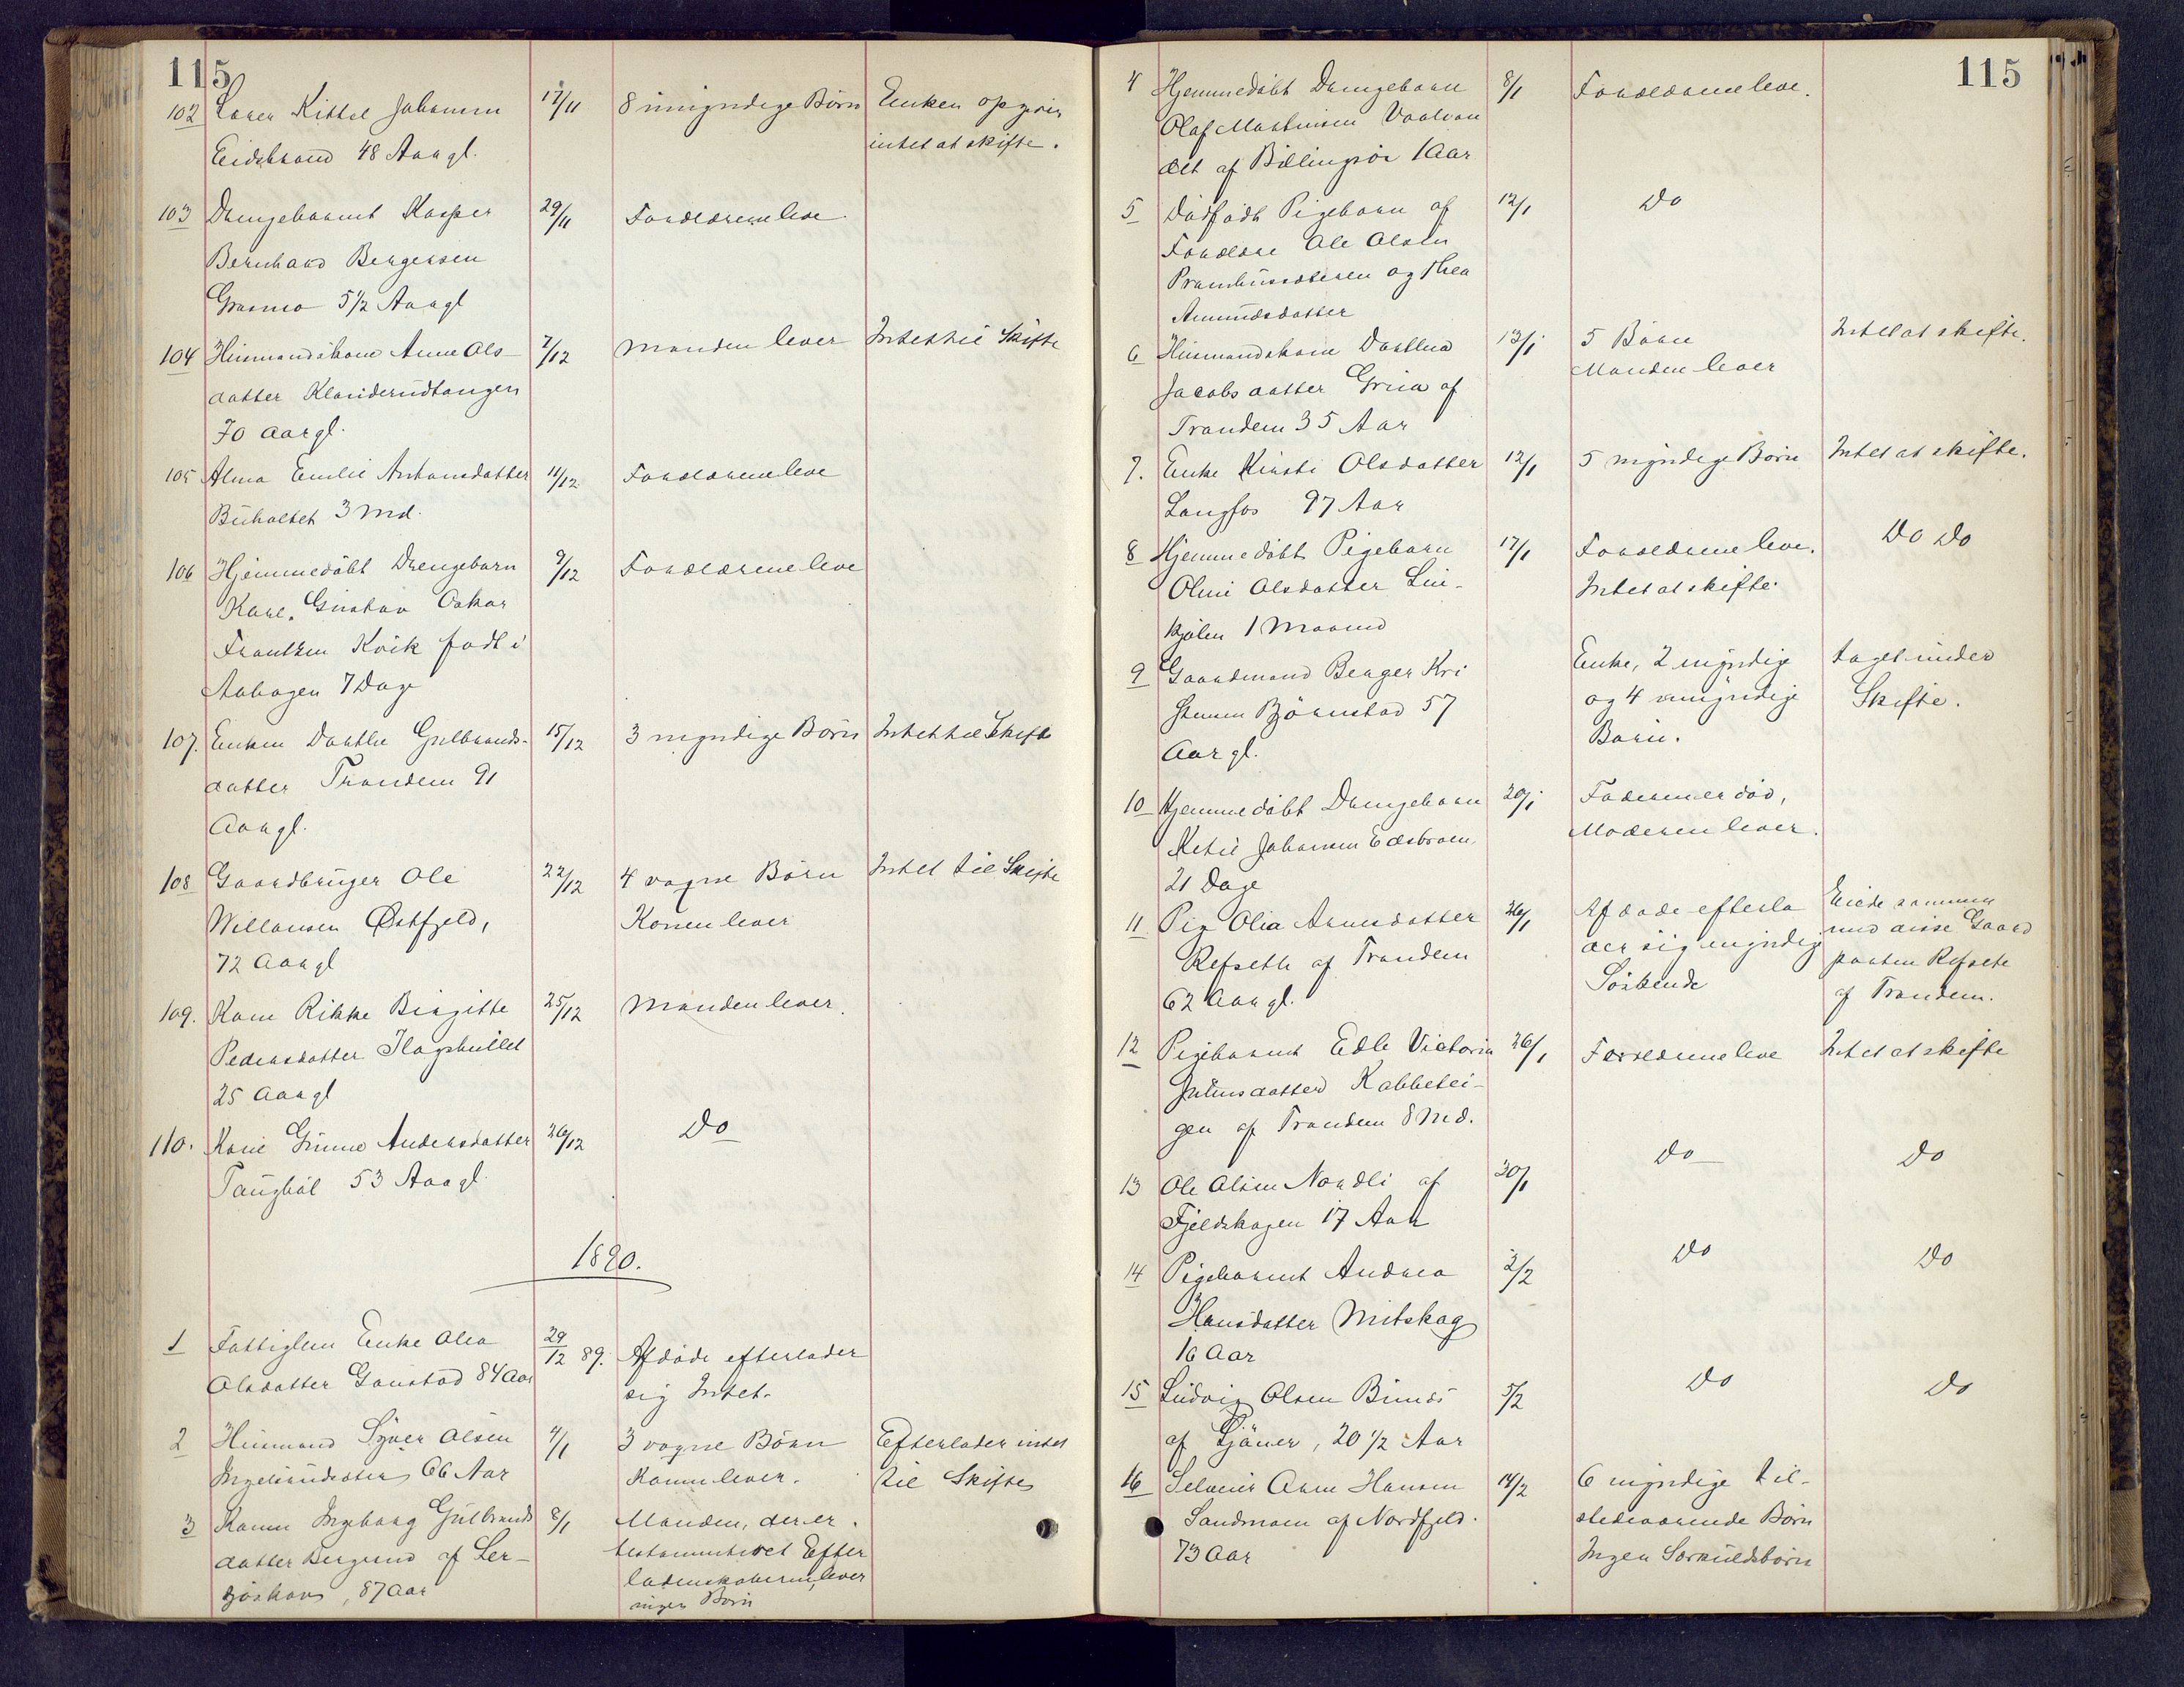 115
102 Kittel Johansen 17/11 8 umyndige Børn Enken opgiver
Eidsbraad 48 Aargl. intet at skifte.
103 Drengebarnet Kasper 29/11 Forældrene leve
Bernhard Bergersen
Grasmo 5 1/2 Aargl
104 Husmandskone Anne Ols- 7/12 Manden lever Intet til Skifte
datter Klanderudtangen
70 aargl.
105 Alma Emilie Antonsdatter 11/12 Forældrene leve
Buholtet 3 Md.
106 Hjemmedøbt Drengebarn 9/12 Forældrene leve
Karl. Gustav Oskar
Frantzen Kvik født i
Aabogen 7 Dage
107. Enken Dorthe Gulbrands- 15/12 3 myndige Børn Intet til Skifte
datter Trandem 91
Aargl.
108 Gaardbruger Ole 22/12 4 voxne Børn Intet til Skifte
Willansen Østfjeld, Konen lever
72 Aargl
109. Kone Rikke Birgitte 25/12 Manden lever.
Pedersdatter Ilagshullet
25 Aargl
110. Kone Gunne Andersdatter 26/12 Do
Taugbøl 53 Aargl.
1890.
1 Fattiglem Enke Olea 29/12 89. Afdøde efterlader
Olsdatter Gaustad 84 Aar sig Intet.
2 Husmand Syver Olsen 4/1 3 voxne Børn Efterlader intet
66 Aar Konen lever. til Skifte
3 Konen Ingeborg Gulbrands 8/1 Manden, der er
datter Bergerud af Ler- testamenteret Efter
87 Aar ladenskaberne, lever
ingen Børn
115
4 Hjemmedøbt Drengebarn 8/1 Forældrene leve.
Olaf Martinsen Vaalvan
det af Billingsøe 1 Aar
5 Dødfødt Pigebarn af 12/1 Do
Forældre Ole Olsen
og Thea
Amundsdatter
6 Husmandskone Dorthea 13/1 5 Børn Intet at skifte.
Jacobsdatter Grina af Manden lever
Trandem 35 Aar
7. Enke Kirsti Olsdatter 12/1 5 myndige Børn Intet at skifte.
Langfos 97 Aar
8 Hjemmedøbt Pigebarn 17/1 Forældrene leve. Do Do
Oline Olsdatter Lin- Intet at skifte.
kjølen 1 Maaned
9 Gaardmand Berger Kri Enke, 2 myndige taget under
stensen Bjørnstad 57 og 4 umyndige Skifte.
Aar gl. Børn.
10 Hjemmedøbt Drengebarn 20/1 Faderen er død,
Ketil Johansen Moderen lever.
21 Dage
11 Pige Olia Arnesdatter 26/1 Afdøde efterla Eiede sammen
Refseth af Trandem der sig myndige med disse Gaard
62 Aargl. Søskende parten Refsete
af Trandem.
12 Pigebarnet Edle Victoria 26/1 Forældrene leve Intet at skifte
Juliusdatter Kabbetei-
gen af Trandem 8 Md.
13 Ole Olsen Nordli af 30/1 Do Do
Fjeldskogen 17 Aar
14 Pigebarnet Andrea 2/2 Do Do
Hansdatter Mitskog
16 Aar
15 Ludvig Olsen 5/2 Do Do
af 20 1/2 Aar
16 Selveier Arne Hansen 14/2 6 myndige til-
Sandmoen af Nordfjeld. stedeværende Børn
73 Aar Ingen Særkuldsbørn